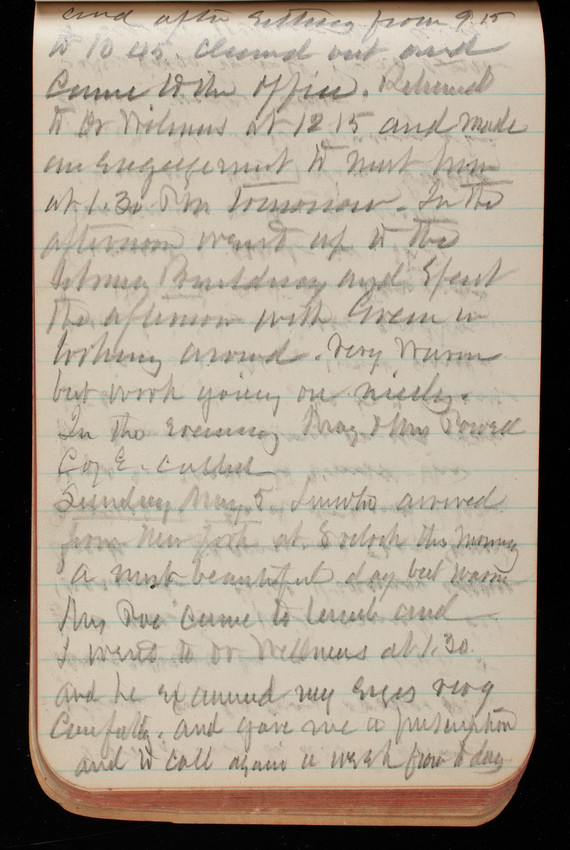 and after sitting from 9.15
to 10 45 cleaned out and
came to the office. Returned
to Dr Wilmers at 12 15 and made
an engagement to meet him
at 1.30 P.m tomorrow. In the
afternoon went up to the
Library Building and Spent
the afternoon with Green in
looking around. Very warm
but work going on nicely.
In the evening Bvg & Mrs Powell
Coz E. called
Sunday May 5. arrived
from New York at 8 oclock this morning
a most beautiful day but warm
Mrs came to lunch and
I went to Dr Wilmers at 1.30
and he examined my Eyes very
Carefully. and gave me a prescription
and to call again a week from to day